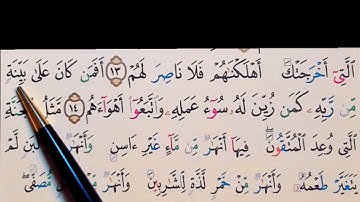 الَّتِىٓ أَخْرَجَتْكَ أَهْلَكْنَٰهُمْ فَلَا نَاصِرَ لَهُمْ ١٣ أَفَمَن كَانَ عَلَىٰ بَيِّنَةٍ
مِن رَّبِّهِۦ كَمَن زُيِّنَ لَهُۥ سُوٓءُ عَمَلِهِۦ وَاتَّبَعُوٓا أَهْوَآءَهُم ١٤ مَثَلُ الْجَنَّةِ
الَّتِى وُعِدَ الْمُتَّقُونَ فِيهَآ أَنْهَٰرٌ مِن مَّآءٍ غَيْرِ ءَاسِنٍ وَأَنْهَٰرٌ مِن لَّبَنٍ لَّمْ
يَتَغَيَّرْ طَعْمُهُۥ وَأَنْهَٰرٌ مِنْ خَمْرٍ لَّذَّةٍ لِلشَّٰرِبِينَ وَأَنْهَٰرٌ مِنْ عَسَلٍ مُصَفًّى